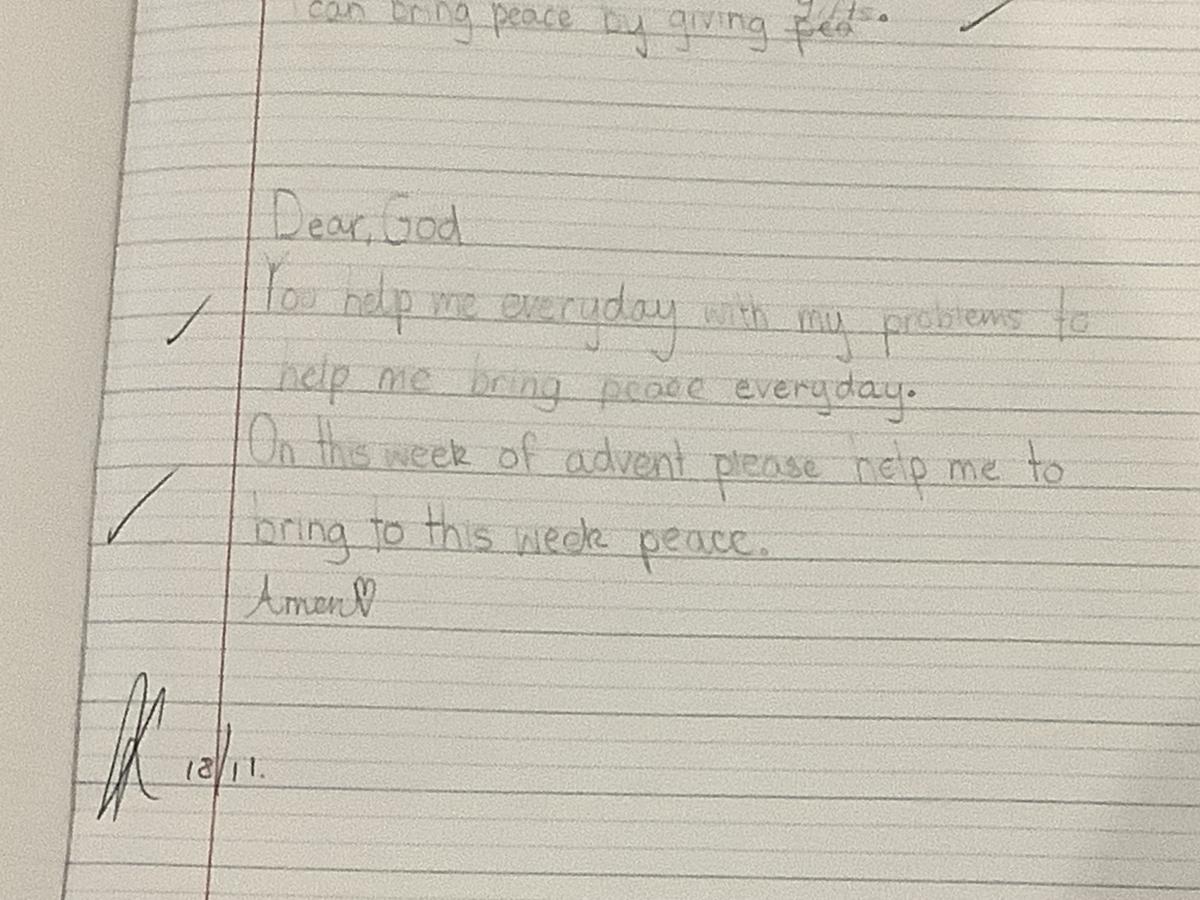 can bring peace by giving gifts.
Dear, God
You help me everyday with my problems to
help me bring peace everyday.
On this week of advent please help me to
bring to this week peace.
Amen♡
18/11.